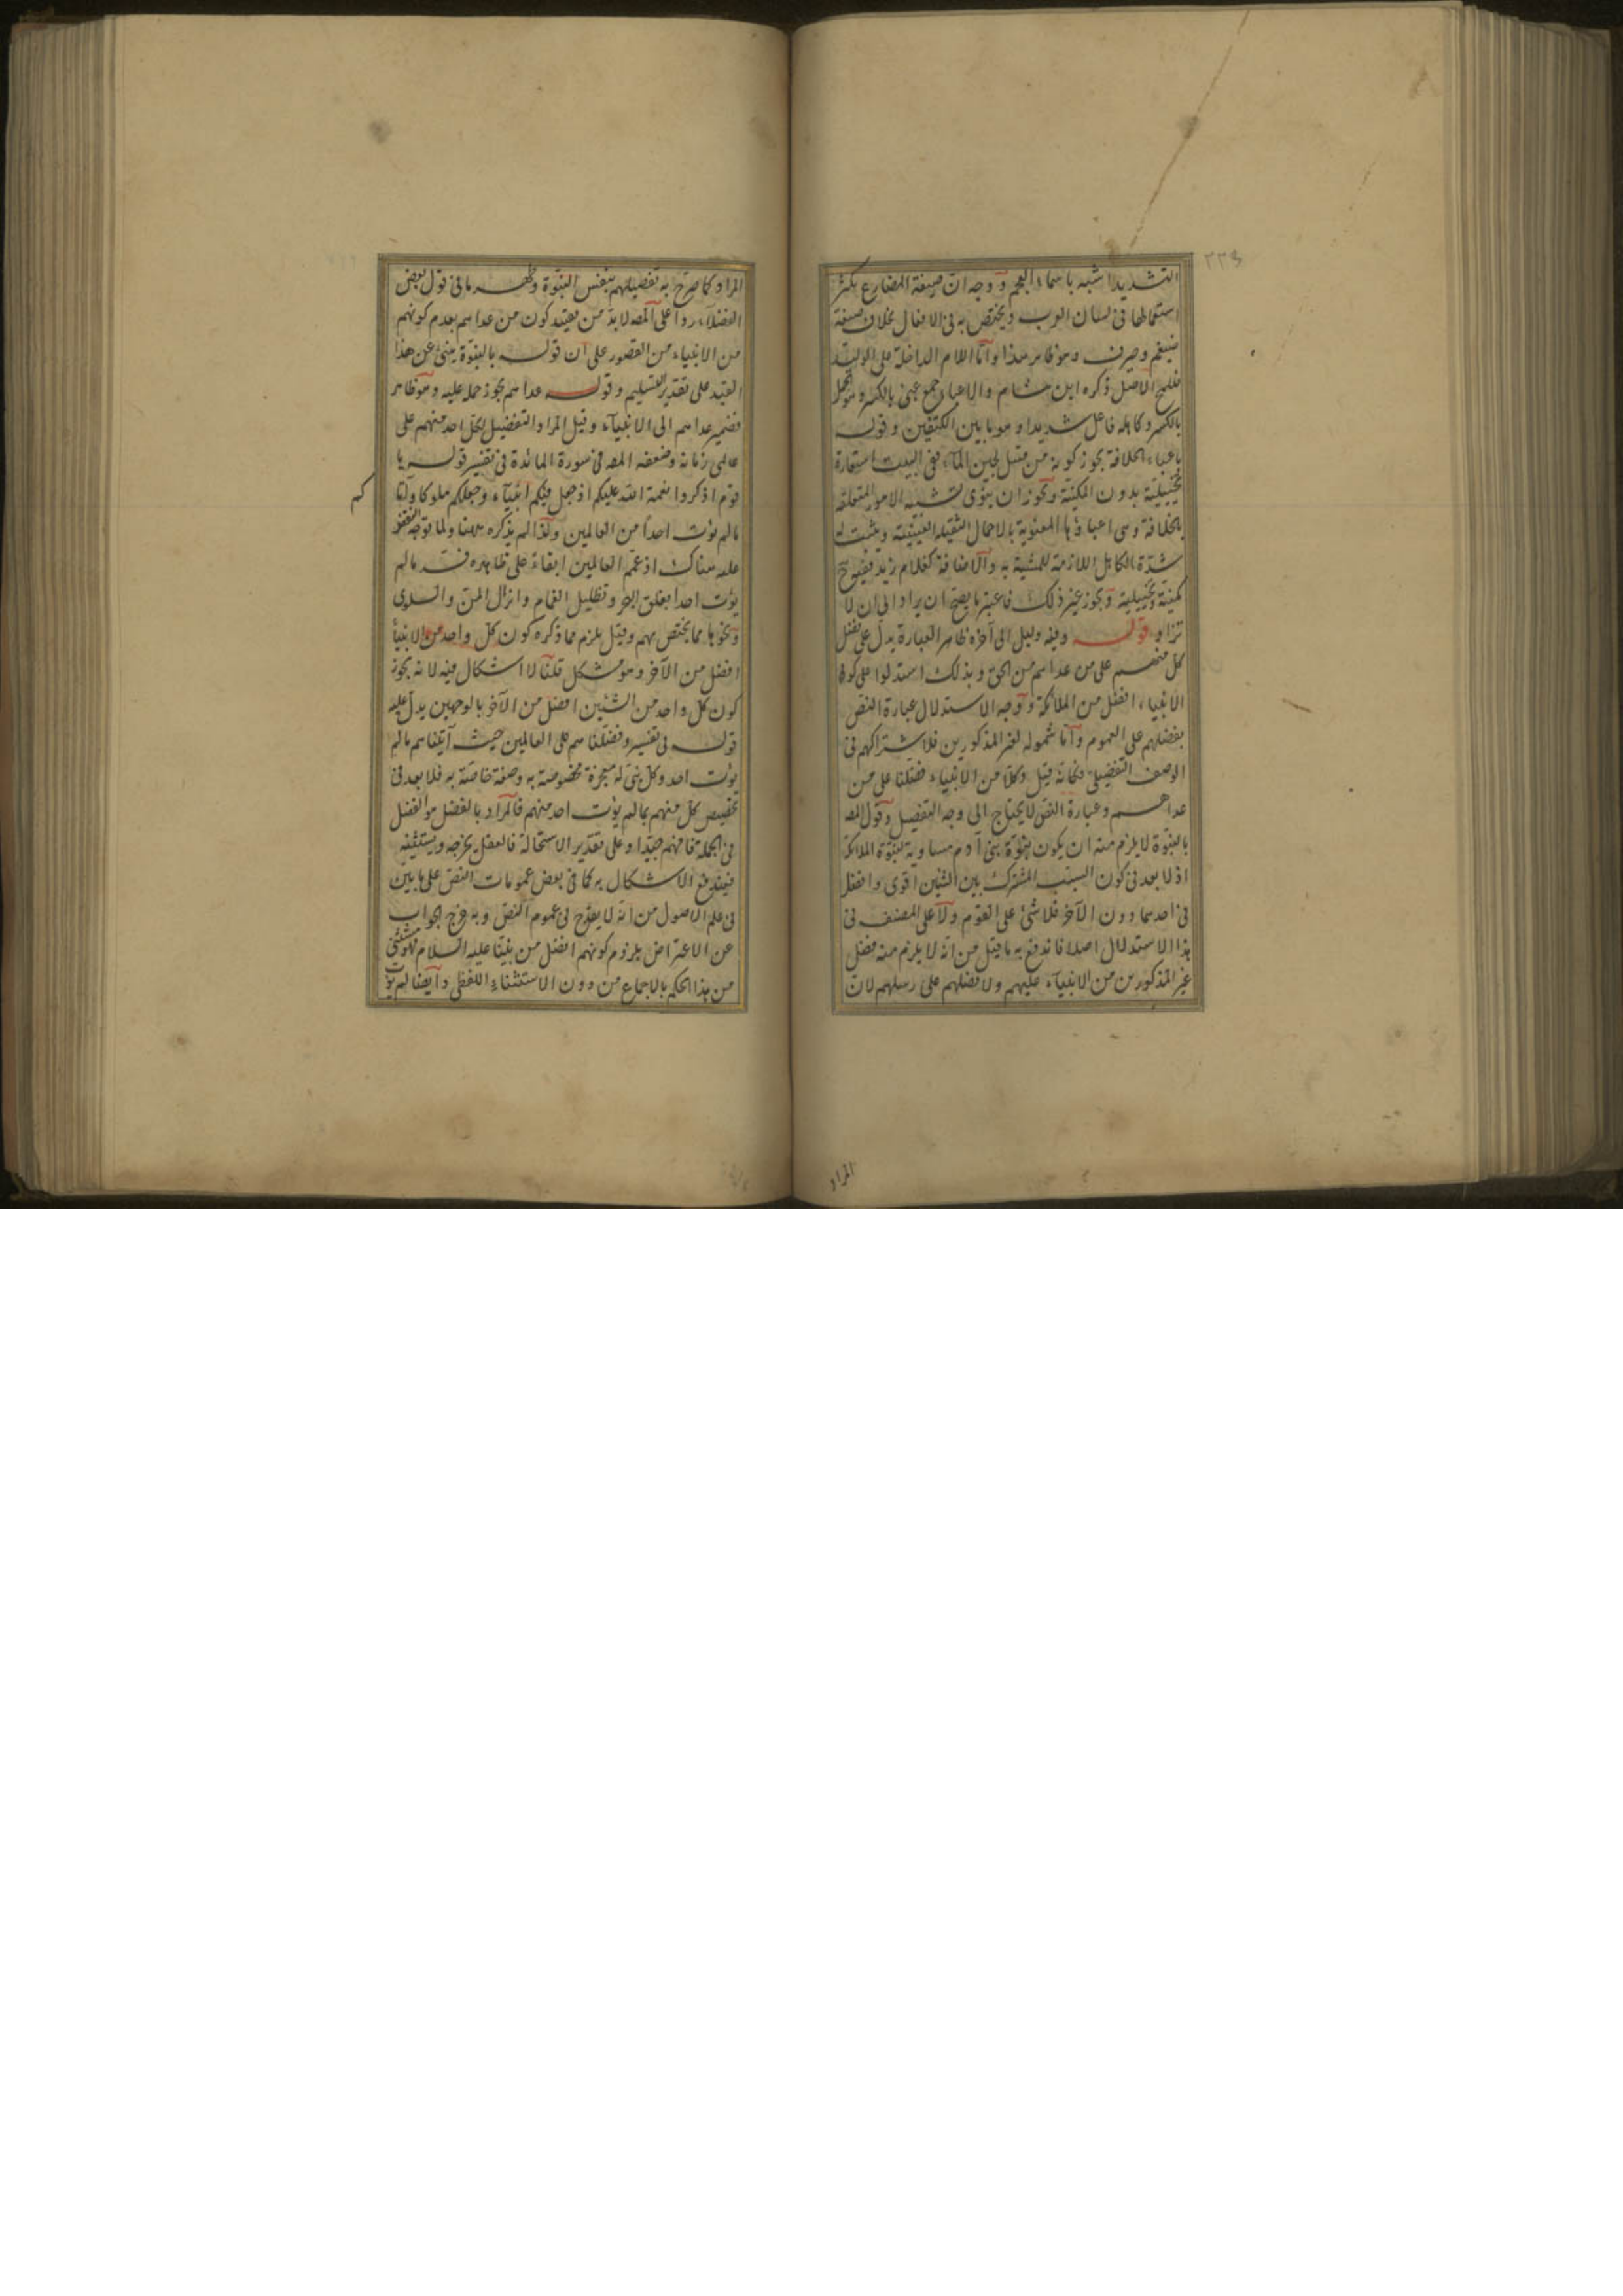 ٢٣٩
التشديد اشبه باسماء العجم ووجه ان صيغة المضارع يكثر
استعمالها فى لسان العرب ويختص به فى الافعال بخلاف صيغة
ضيغم وصيرف وهو ظاهر هذا واما اللام الداخلة على الوليد
فللمح الاصل ذكره ابن هشام والاعباء جمع عبئ بالكسر وهو الحمل
بالكسر وكاهله فاعل شديدا وهو ما بين الكتفين وقوله
باعباء الخلافة يجوز كونه من قبيل لجين المآء ففى البيت استعارة
تخييلية بدون المكنية ويجوز ان ينوى تشبيه الامور المتعلقة
بالخلافة وهى اعباؤها المعنوية بالاحمال الثقيلة العينية ويثبت له
شدة الكاهل اللازمة للمشبه به والاضافة كغلام زيد فيتضح
مكنية وتخييلية ويجوز غير ذلك فاعتبر ما يصح ان يراد الى ان لا
تزاد قوله وفيه دليل الى آخره ظاهر العبارة يدل على فضل
كل منهم على من عداهم من الخلق وبذلك استدلوا على كون
الانبياء افضل من الملائكة ووجه الاستدلال عبارة النص
بفضلهم على العموم واما شموله لغير المذكورين فلاشتراكهم فى
الوصف التفضيلى فكانه قيل وكلا من الانبياء فضلنا على من
عداهم وعبارة النص لا يحتاج الى وجه التفضيل وقول المصـ
بالنبوة لا يلزم منه ان يكون نبوة بنى آدم مساوية لنبوة الملائكة
اذ لا بعد فى كون السبب المشترك بين الشئين اقوى وافضل
فى احدهما دون الآخر فلا شئ على القوم ولا على المصنف فى
هذا الاستدلال اصلا فاندفع به ما قيل من انه لا يلزم منه فضل
غير المذكورين من الانبيآء عليهم ولا فضلهم على رسلهم لان
المراد
المراد كما صرح به تفضيلهم بنفس النبوة وظهر ما فى قول بعض
الفضلآء ردا على المصـ لا بد من تقييد كون من عداهم بعدم كونهم
من الانبياء من القصور على ان قوله بالنبوة ينبئ عن هذا
القيد على تقدير التسليم وقوله عداهم يجوز حمله عليه وهو ظاهر
فضمير عداهم الى الانبيآء وقيل المراد التفضيل لكل احد منهم على
عالمى زمانه وضعفه المصـ فى سورة المائدة فى تفسير قوله يا
قوم اذكروا نعمة الله عليكم اذ جعل فيكم انبيآء وجعلكم ملوكا وآتا
كم
مالم يؤت احدا من العالمين ولذا لم يذكره ههنا ولما توجه النقض
عليه هناك اذ عمم العالمين ابقاء على ظاهره فسر مالم
يؤت احدا بفلق البحر وتظليل الغمام وانزال المن والسلوى
ونحوها مما يختص بهم وقيل يلزم مما ذكره كون كل واحد من الانبيآ
افضل من الآخر وهو مشكل قلنا لا اشكال فيه لانه يجوز
كون كل واحد من الشئين افضل من الآخر بالوجهين يدل عليه
قوله فى تفسير وفضلناهم على العالمين حيث آتيناهم مالم
يؤت احد وكل نبى له معجزة مخصوصة به وصفة خاصة به فلا بعد فى
تخصيص كل منهم بمالم يؤت احد منهم فالمراد بالفضل هو الفضل
فى الجملة فافهم جيدا وعلى تقدير الاستحالة فالعقل يخرجه ويستثنيه
فيندفع الاشكال به كما فى بعض عمومات النص على ما بين
فى علم الاصول من انه لا يقدح فى عموم النص وبه خرج الجواب
عن الاعتراض بلزوم كونهم افضل من نبينا عليه السلام فهو مستثنى
من هذا الحكم بالاجماع من دون الاستثناء اللفظى وايضا لم يؤت